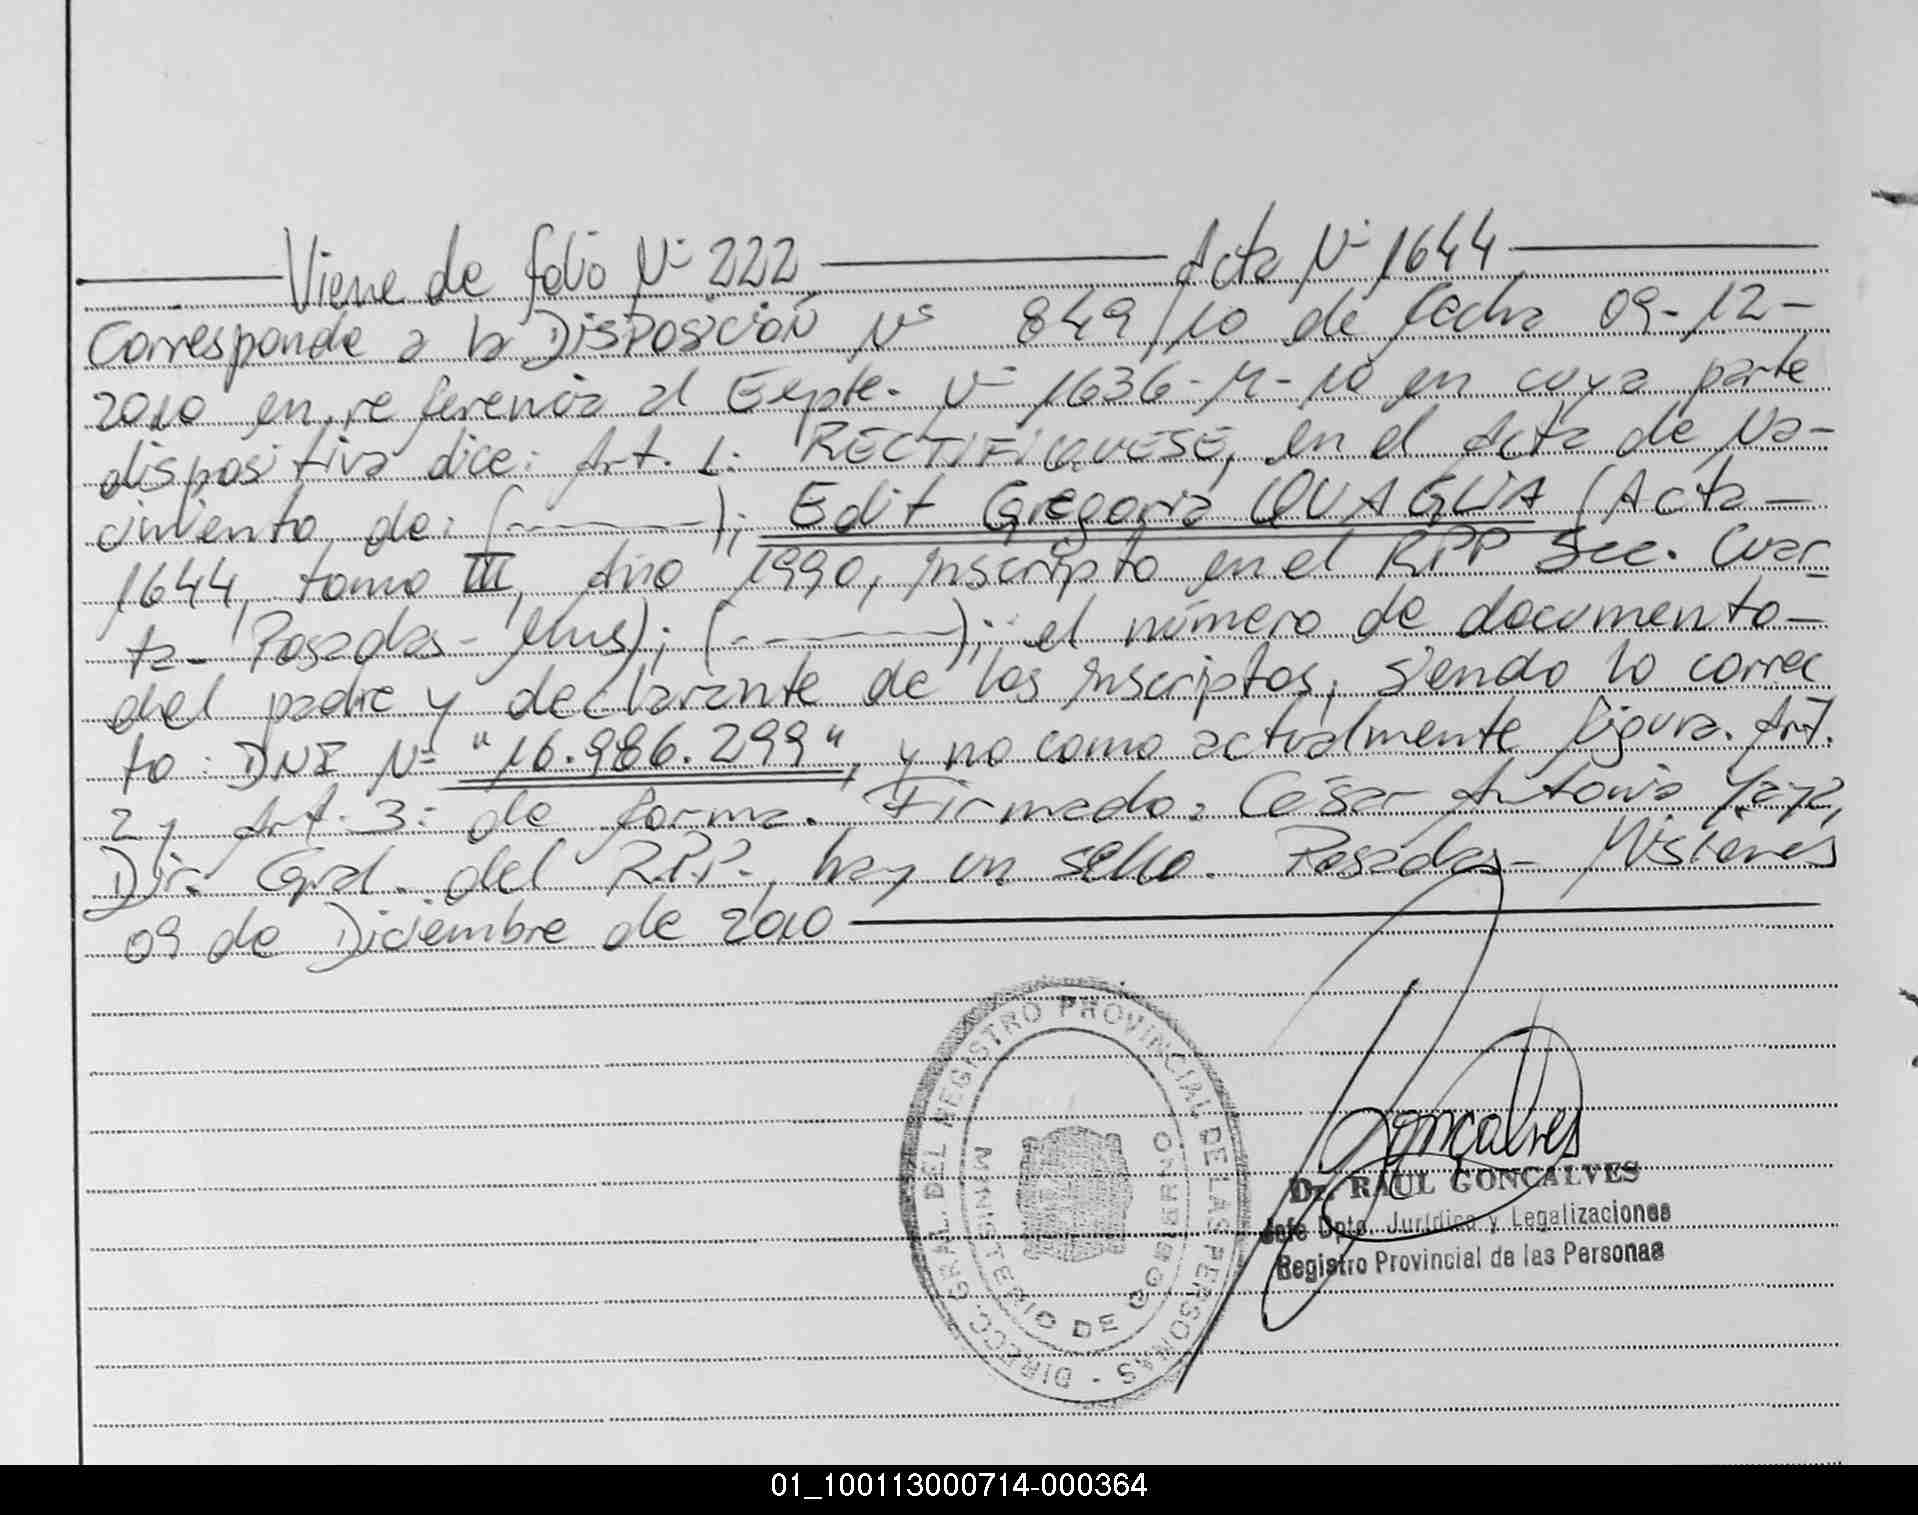 Viene de folio Nº 222 Acta Nº 1644
Corresponde a la DISPOSICIÓN Nº 849/10 de fecha 09-12-
2010 en referencia al Expte. Nº 1636-M-10 en cuya parte
dispositiva dice: Art. 1: RECTIFIQUESE, en el Acta de Na-
cimiento de: (---------); Edit Gregoria QUAGLIA (Acta-
1644, tomo III, Año 1990, inscripto en el RPP Sec. Cuar-
ta- Posadas- Mnes); (---------); el número de documento-
del padre y declarante de los inscriptos, siendo lo correc
to: DNI Nº "16.986.299", y no como actualmente figura. Art.
2 y Art. 3: de forma. Firmado: César Antonio
Dir. Gral. del R.P.P., hay un sello. Posadas- Misiones
09 de Diciembre de 2010
DIRECC. GRAL. DEL REGISTRO PROVINCIAL DE LAS PERSONAS -
MINISTERIO DE GOBIERNO
Goncalves
Dr. RAUL GONCALVES
Jefe Dpto. Jurídico y Legalizaciones
Registro Provincial de las Personas
01_100113000714-000364